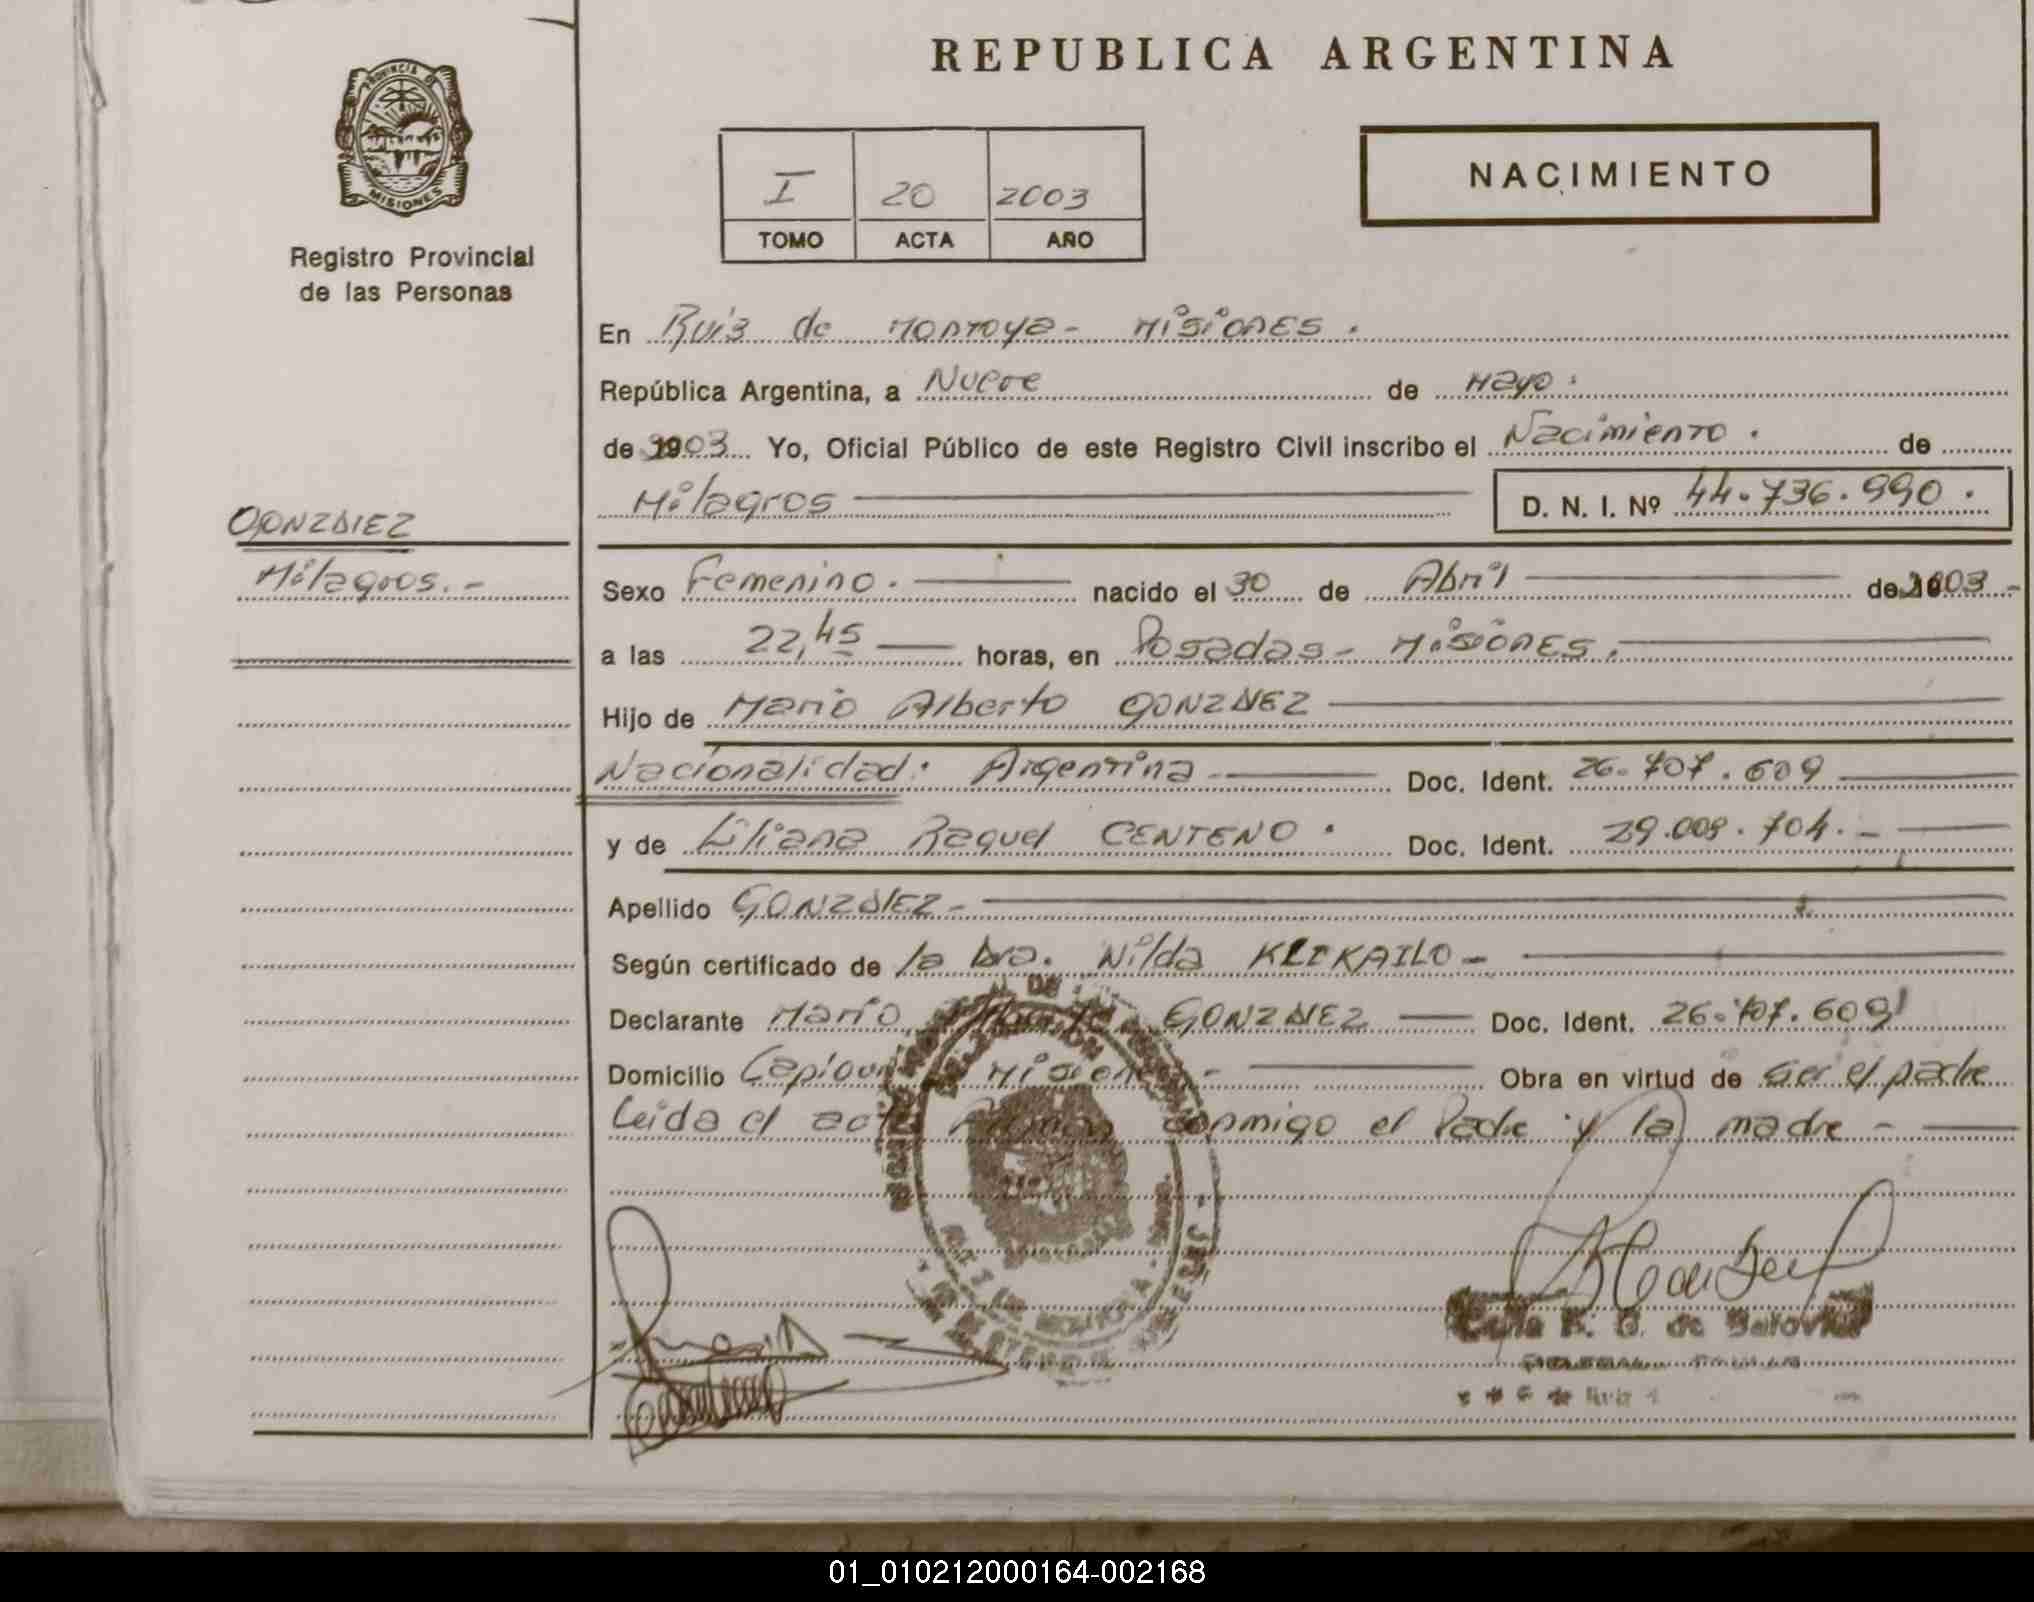 PROVINCIA DE
MISIONES
Registro Provincial
de las Personas
GONZALEZ
Milagros.-
REPUBLICA ARGENTINA
I 20 2003
TOMO ACTA AÑO
NACIMIENTO
En Ruiz de Montoya - Misiones.
República Argentina, a Nueve de Mayo.
de 2003 Yo, Oficial Público de este Registro Civil inscribo el Nacimiento. de
Milagros D. N. I. Nº 44.736.990.
Sexo Femenino. nacido el 30 de Abril de 2003.-
a las 22,45 horas, en Posadas - Misiones.
Hijo de Mario Alberto GONZALEZ
Nacionalidad: Argentina Doc. Ident. 26.707.609
y de Liliana Raquel CENTENO. Doc. Ident. 29.009.704.-
Apellido GONZALEZ-
Según certificado de la Dra. Nilda KLEKAILO-
Declarante Mario Alberto GONZALEZ Doc. Ident. 26.707.609
Domicilio Misiones- Obra en virtud de ser el padre
Leida el acta Firman conmigo el Padre y la madre-
de
01_010212000164-002168